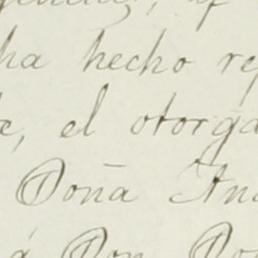 ha hecho re
e, el otorga
Doña An
á Don Do